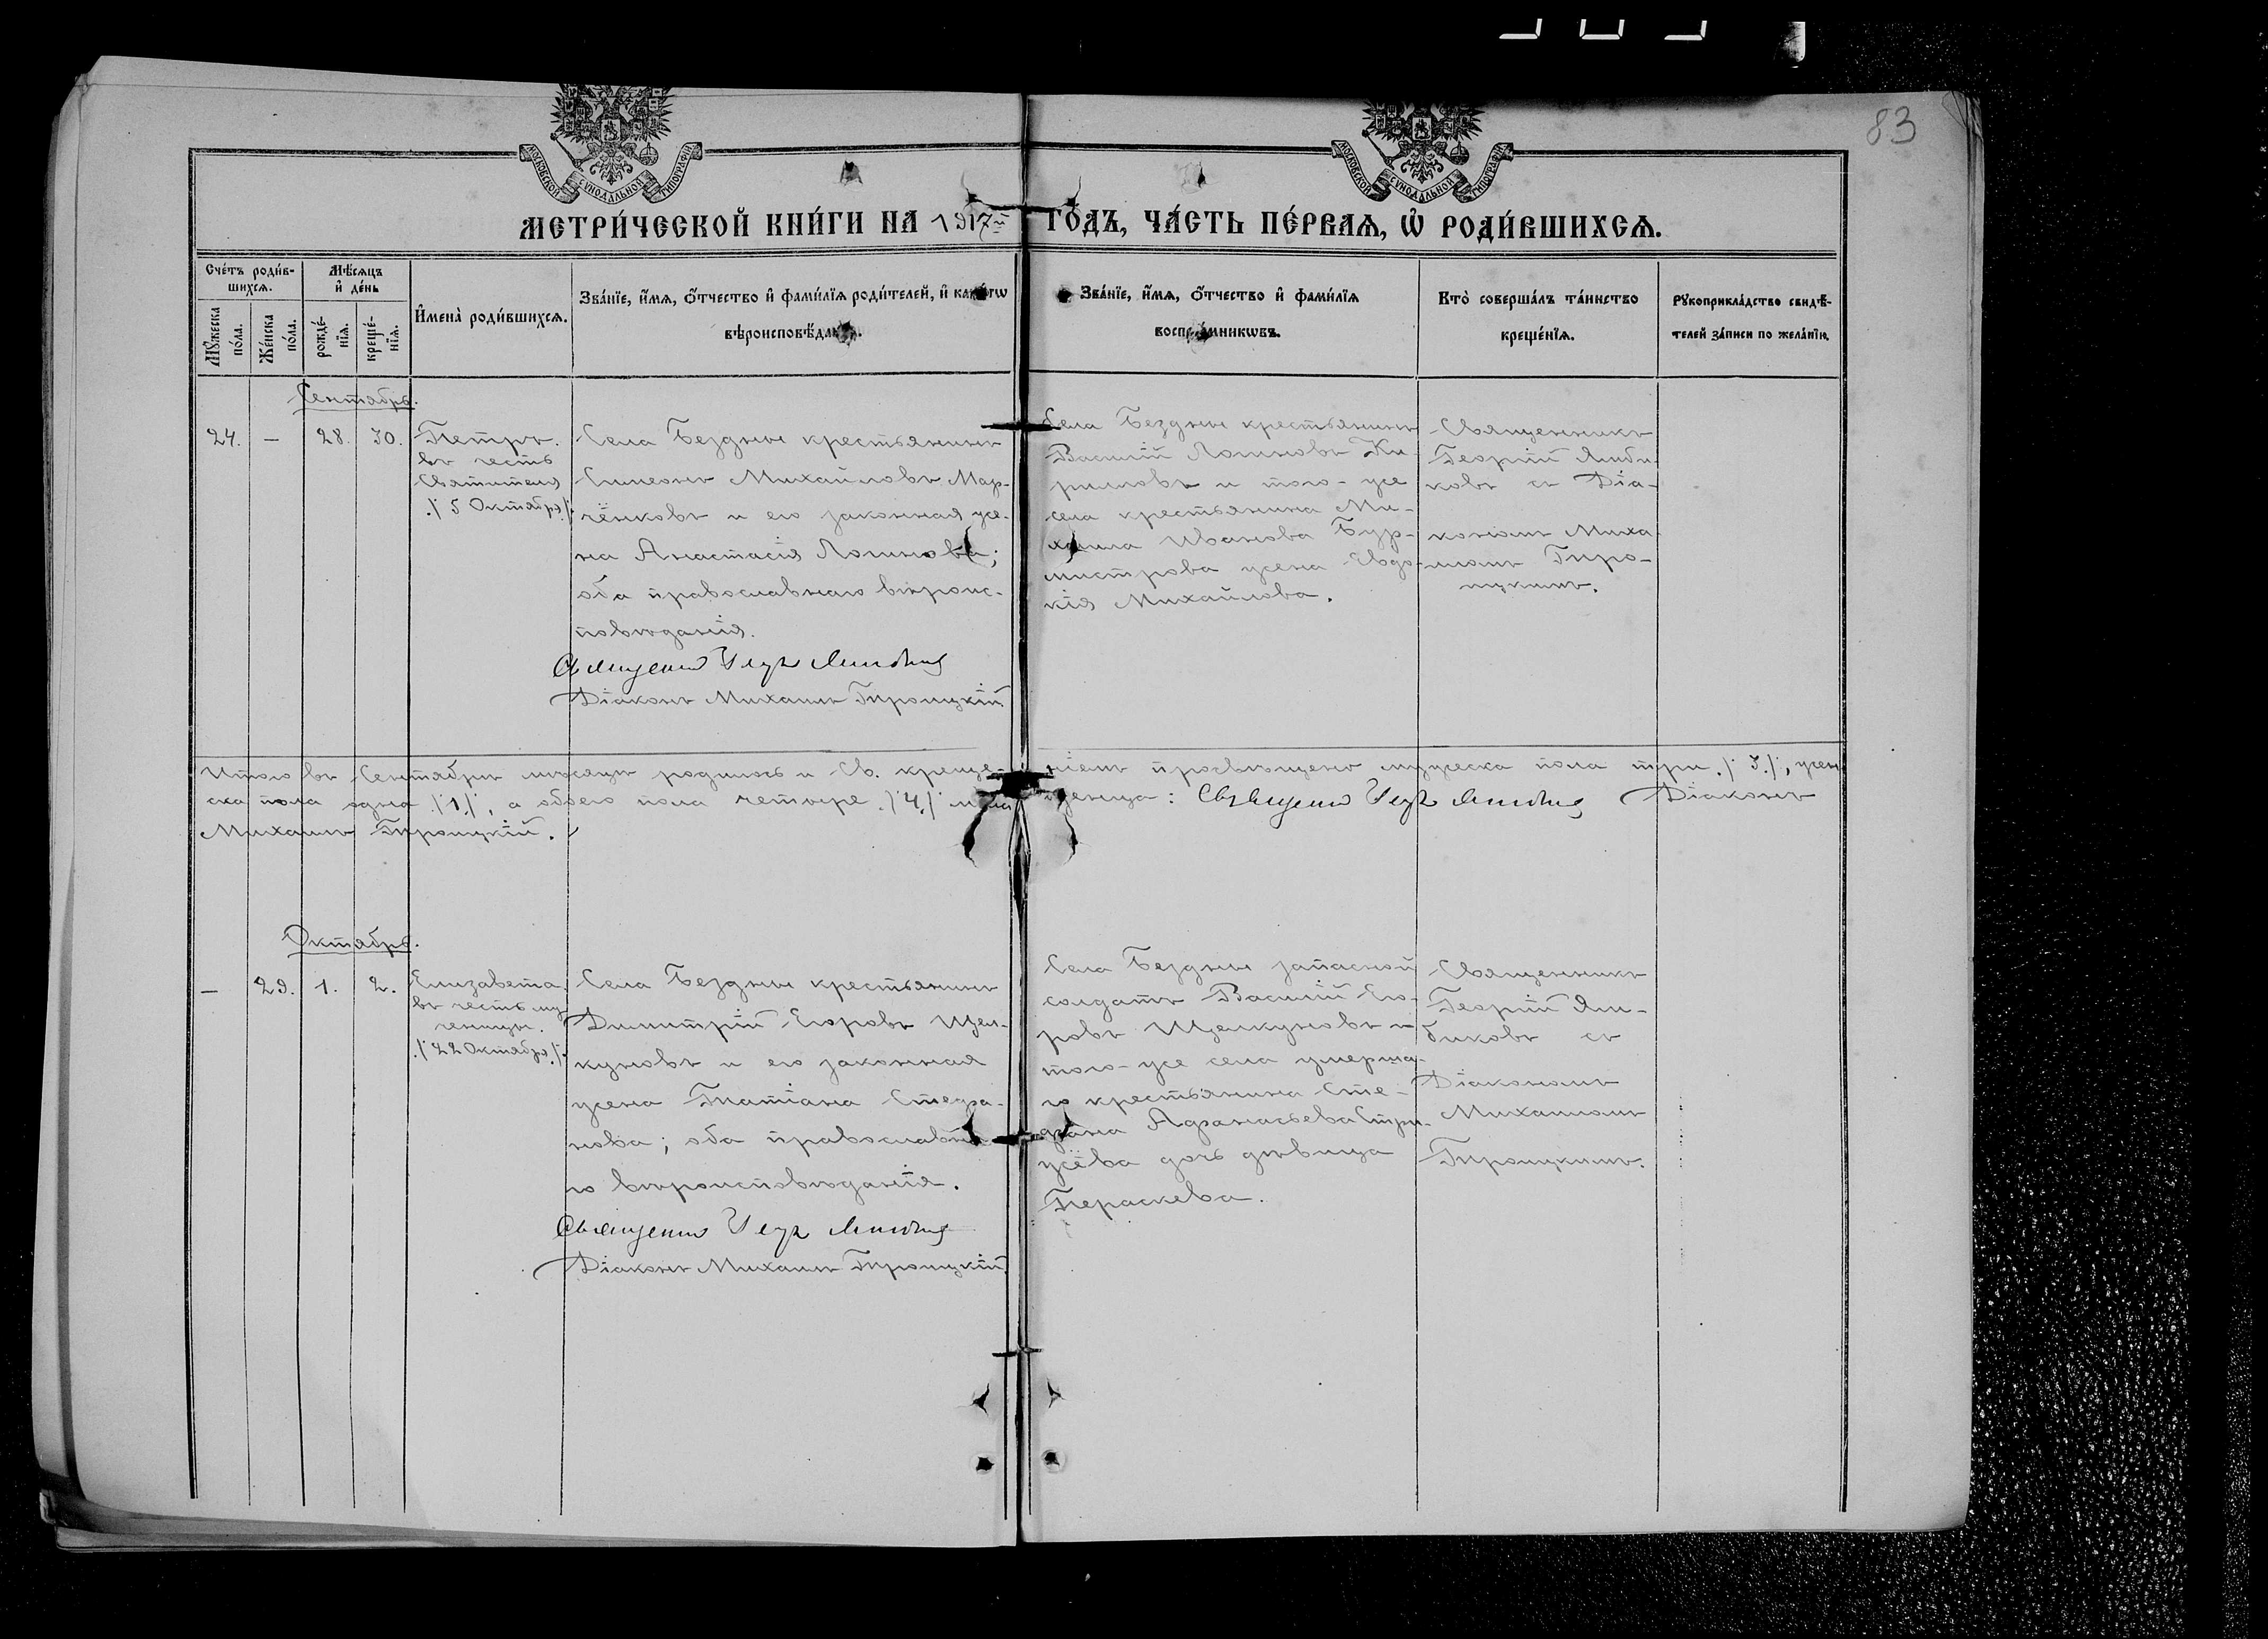 83
МОСКОВСКОЙ СѴНОДАЛЬНОЙ ТИПОГРАФІИ
МОСКОВСКОЙ СѴНОДАЛЬНОЙ ТИПОГРАФІИ
МЕТРИ́ЧЕСКОЙ КНИ́ГИ НА 1917й ГО́ДЪ, ЧА́СТЬ ПЕ́РВАѦ, Ѡ҆ РОДИ́ВШИХСѦ.
Сче́тъ роди́в-
шихсѧ.
Мꙋ́жеска по́ла.
Же́нска по́ла.
Мѣ́сѧцъ
и҆ де́нь
рожде́-
нїѧ.
креще́-
нїѧ.
И҆мена̀ роди́вшихсѧ.
Зва́нїе, и҆́мѧ, ѻ҆́тчество и҆ фами́лїѧ роди́телей, и҆ како́гѡ
вѣроисповѣ́данїѧ.
Зва́нїе, и҆́мѧ, ѻ҆́тчество и҆ фами́лїѧ
воспрїе́мникѡвъ.
Кто̀ соверша́лъ та́инство
креще́нїѧ.
Рꙋкоприкла́дство свидѣ́-
телей за́писи по жела́нїю.
Сентябрь.
24. — 28. 30.
Петръ.
въ честь
Святителя
/5 Октября/.
Села Бездны крестьянинъ
Симеонъ Михайловъ Мар-
чёнковъ и его законная же-
на Анастасія Логинова;
оба православнаго вѣроис-
повѣданія.
Священникъ Георг. Ямбиков
Діаконъ Михаилъ Троицкій.
Села Бездны крестьянинъ
Василій Логиновъ Ки-
рилловъ и того-же
села крестьянина Ми-
хаила Иванова Бур-
мистрова жена Евдо-
кія Михайлова.
Священникъ
Георгій Ямби-
ковъ съ Діа-
кономъ Миха-
иломъ Трои-
цкимъ.
Итого въ Сентябрѣ мѣсяцѣ родилось и Св. креще- ніемъ просвѣщено мужеска пола три /3/, жен-
ска пола одна /1/, а обоего пола четыре /4/ мла денца: Священникъ Георг. Ямбиков Діаконъ
Михаилъ Троицкій.
Октябрь.
— 29. 1. 2.
Елизавета.
въ честь му-
ченицы.
/22 Октября/.
Села Бездны крестьянинъ
Димитрій Егоровъ Щел-
куновъ и его законная
жена Татіана Стефа-
нова; оба православна-
го вѣроисповѣданія.
Священникъ Георг. Ямбиков
Діаконъ Михаилъ Троицкій.
Села Бездны запасной
солдатъ Василій Его-
ровъ Щелкуновъ и
того-же села умерша-
го крестьянина Сте-
фана Афанасьева Стри-
жёва дочь дѣвица
Параскева.
Священникъ
Георгій Ям-
биковъ съ
Діакономъ
Михаиломъ
Троицкимъ.